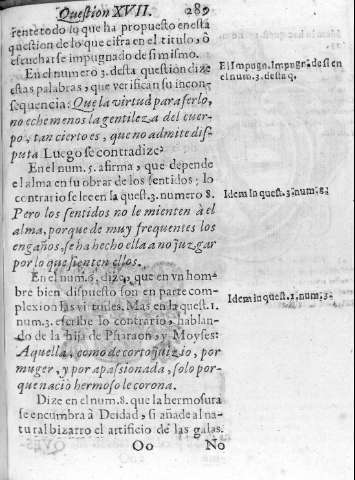 Question XVII. 289
rente todo lo que ha propuesto en esta
question de lo que cifra en el titulo, ò
escucharse impugnado de si mismo.
En el numero 3. desta question dize
estas palabras, que verifican su incon-
sequencia: Que la virtud para serlo,
no eche menos la gentileza del cuer-
po, tan cierto es, que no admite dis-
puta Luego se contradize:
En el num. 5. afirma, que depende
el alma en su obrar de los sentidos; lo
contrario se lee en la quest. 3. numero 8.
Pero los sentidos no le mienten à el
alma, porque de muy frequentes los
engaños, se ha hecho ella a no juzgar
por lo que sienten ellos.
En el num. 6. dize, que en vn hom-
bre bien dispuesto son en parte com-
plexion las vitudes. Mas en la quest. 1.
num. 3. escribe lo contrario, hablan-
do de la hija de Pharaon, y Moyses:
Aquella, como de corto juizio, por
muger, y por apasionada, solo por-
que nacio hermoso le corona.
Dize en el num. 8. que la hermosura
se encumbra à Deidad, si añade al na-
tural bizarro el artificio de las galas.
Oo No
El Impugn. Impugn. de si en
el num. 3. desta q.
Idem in quest. 3. num. 8.
Idem in quest. 1. num. 3.